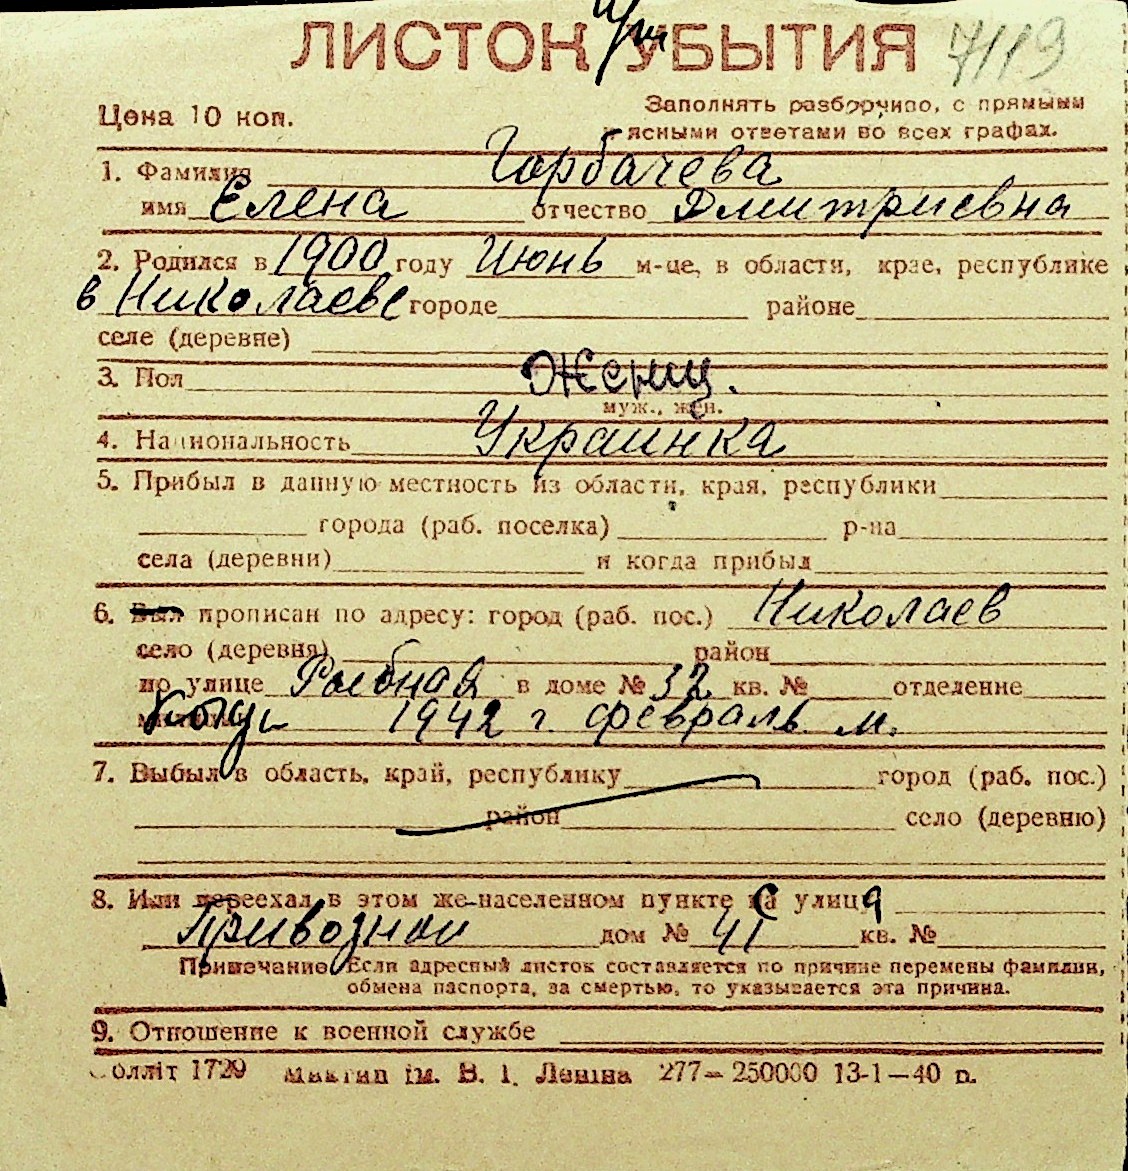 ЛИСТОК УБЫТИЯ 7119
Цена 10 коп.
Заполнять разборчиво, с прямыми
и ясными ответами во всех графах.
1. Фамилия Горбачева
имя Елена отчество Дмитриевна
2. Родился в 1900 году Июнь м-це, в области, крае, республике
в Николаеве городе районе
селе (деревне)
3. Пол Женщ.
муж., жен.
4. Национальность Украинка
5. Прибыл в данную местность из области, края, республики
города (раб. поселка) р-на
села (деревни) и когда прибыл
6. Был прописан по адресу: город (раб. пос.) Николаев
село (деревня) район
по улице Рыбная в доме № 32 кв. № отделение
1942 г. февраль м.
7. Выбыл в область, край, республику город (раб. пос.)
район село (деревню)
8. Или переехал в этом же населенном пункте с улица
Приводной дом № 41 кв. №
Примечание Если адресный листок составляется по причине перемены фамилии,
обмена паспорта, за смертью, то указывается эта причина.
9. Отношение к военной службе
Облліт 1729 ім. В. І. Леніна 277—250000 13-1—40 р.